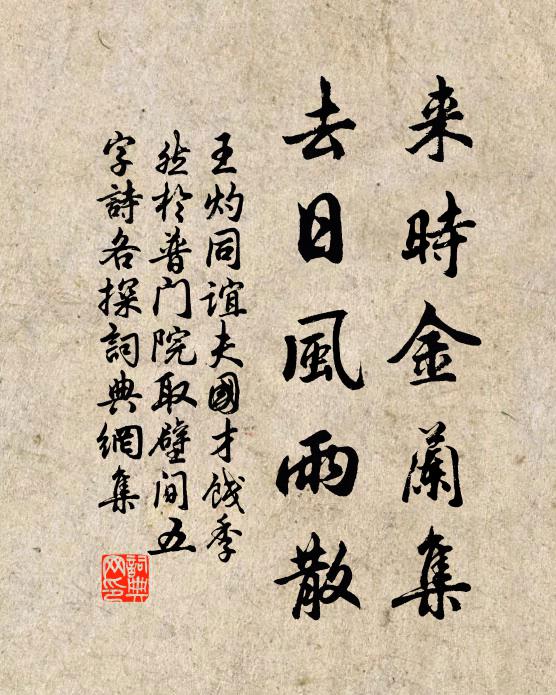 来時金蘭集
去日風雨散
王灼同誼夫國才餞季
然於普门院取壁间五
字詩各探詞典網集
詞典網印